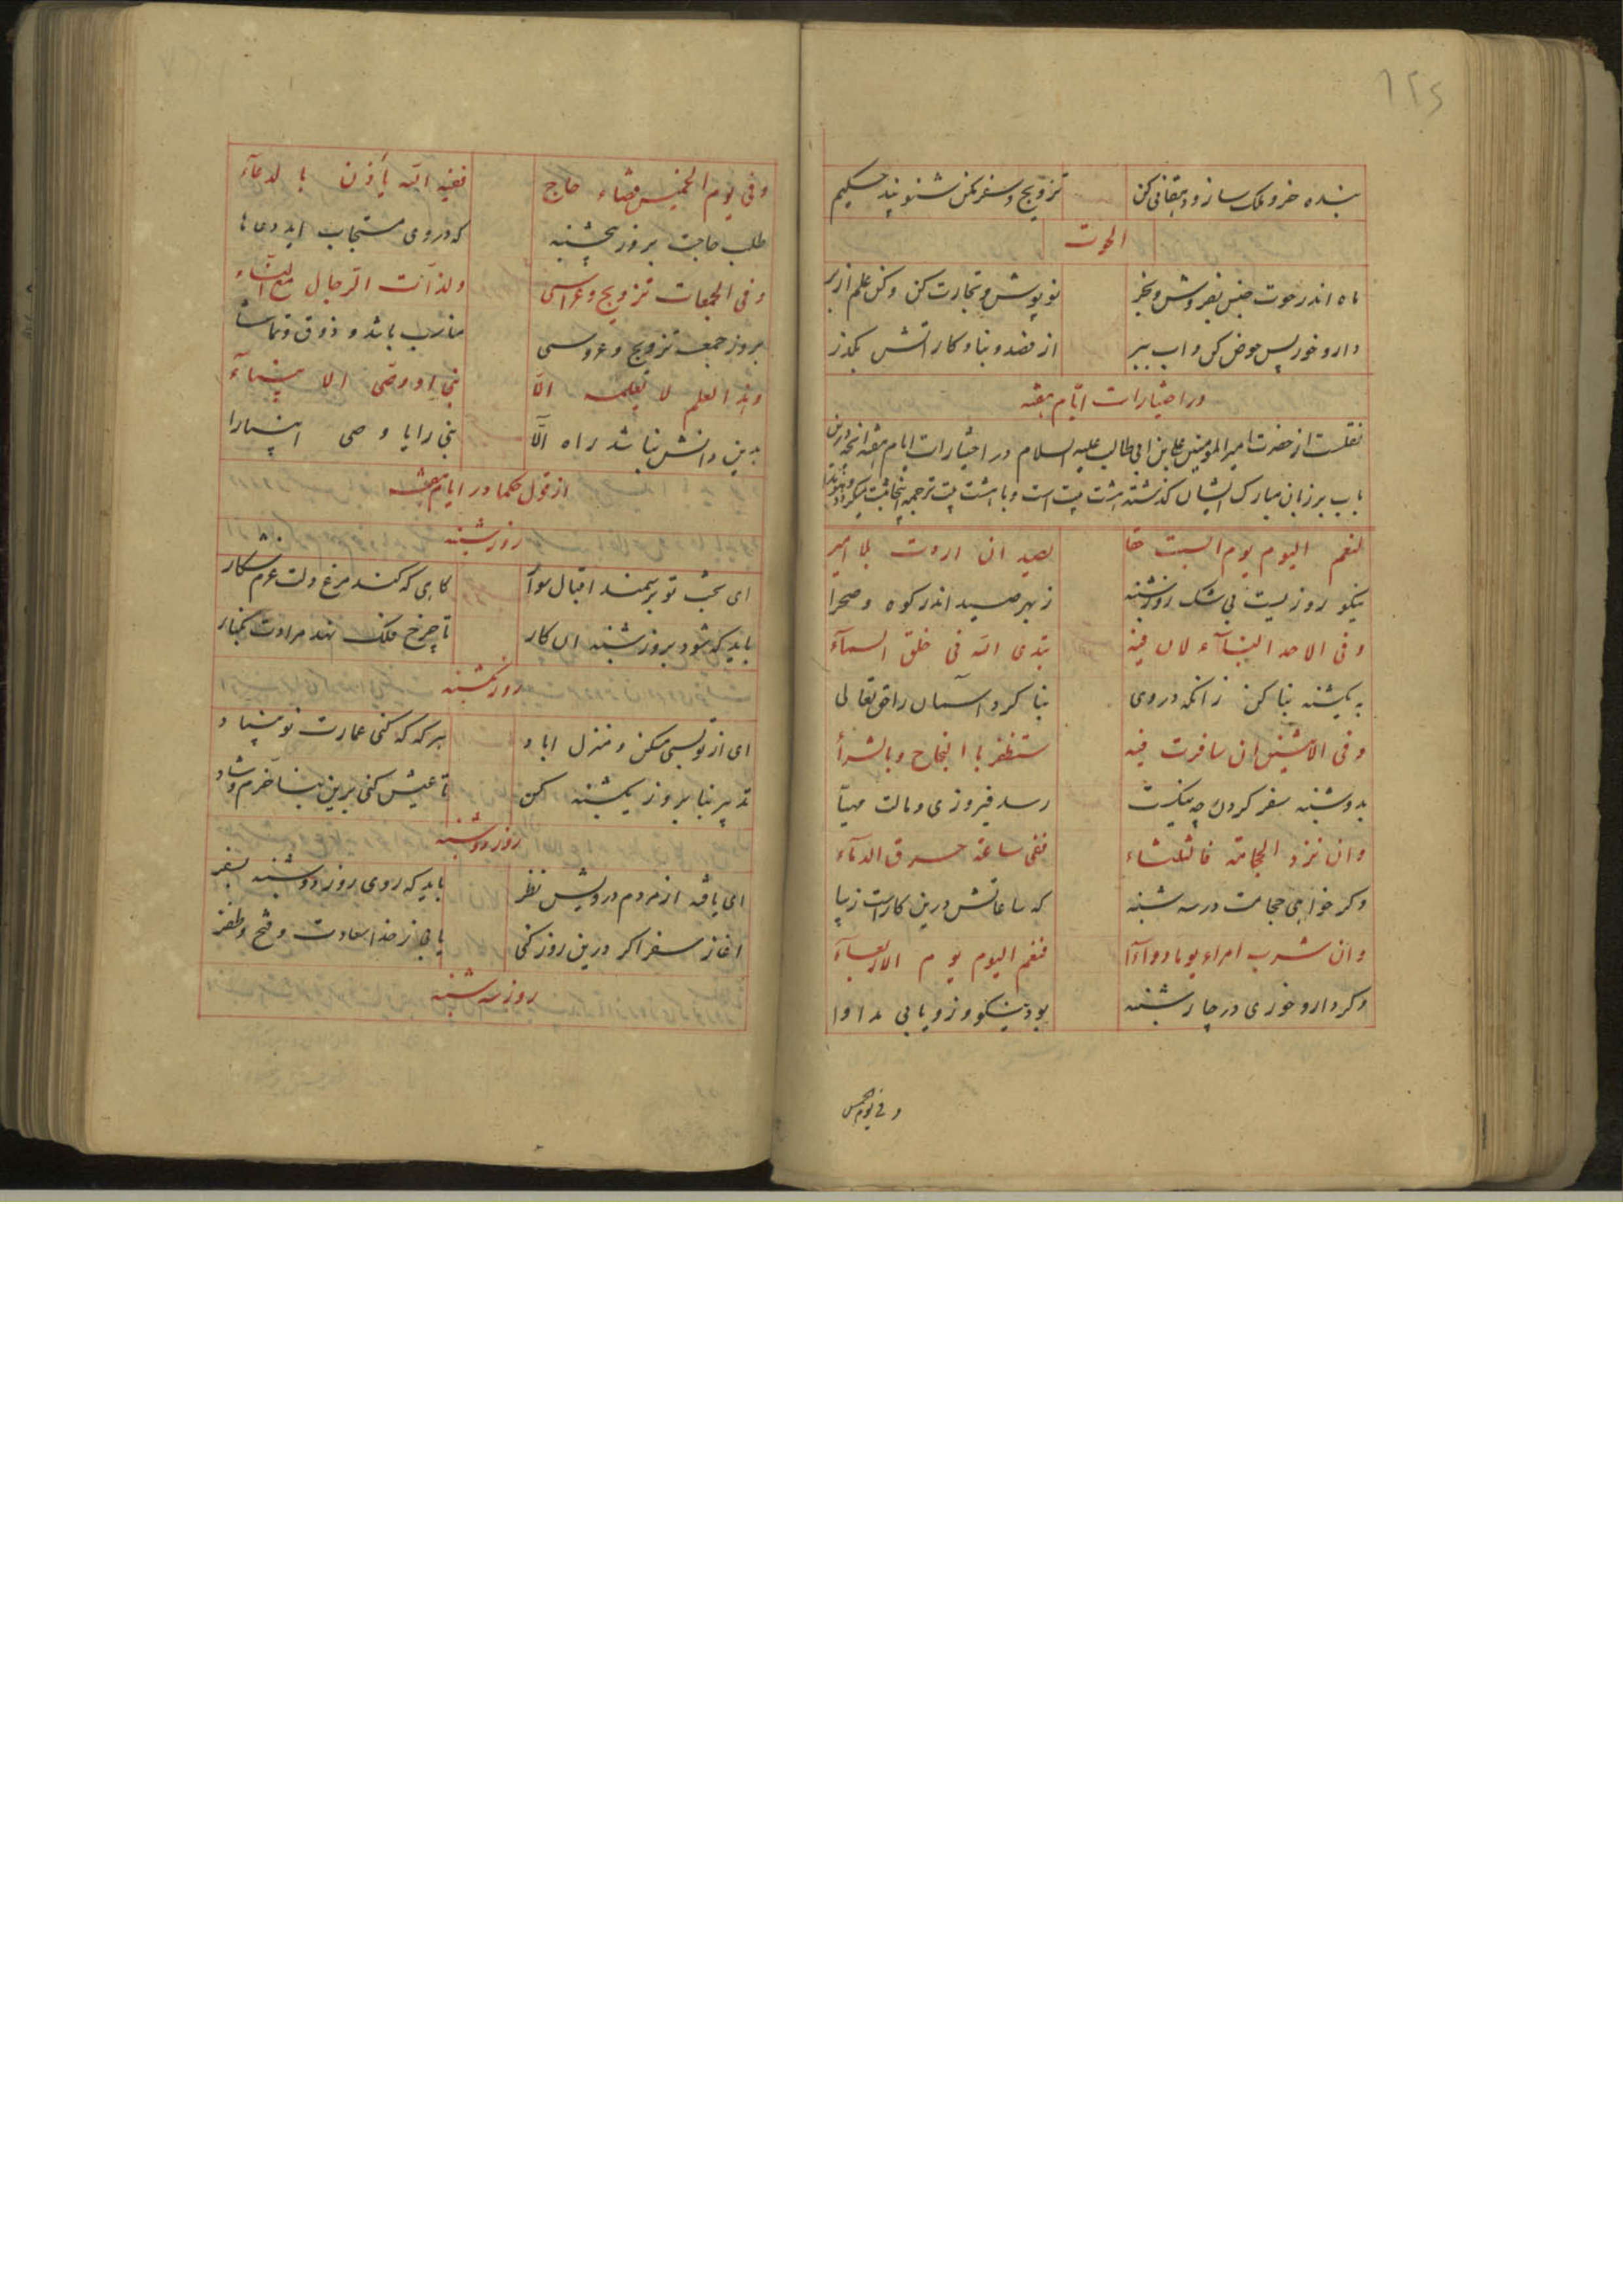 ۱۲۵
بنده خر و ملک ساز و دهقانی کن تزویج و سفر مکن شنو پند حکیم
الحوت
ماه اندر حوت جنس بفروش و بخر نو پوش و تجارت کن و کن علم از بر
دارو خور پس حوض کن و اب ببر از فصد و بنا و کار اتش بگذر
در اختیارات ایّام هفته
نقلست از حضرت امیر المومنین علی بن ابی طالب علیه السلام در اختیارات ایام هفته انچه درین
باب بر زبان مبارک ایشان گذشته هشت بیت است و با هشت بیت ترجمه اینجا ثبت میکردد
لنعم الیوم یوم السبت حقا بصید ان اردت بلا امیر
نیکو روزیست بی شک روز شنبه ز بهر صید اندر کوه و صحرا
و فی الاحد البنآء لان فیه تبدی الله فی خلق السمآء
به یکشنبه بنا کن زانکه در وی بنا کرد اسمان را حق تعالی
و فی الاثنین ان سافرت فیه ستظفر با النجاح و بالشرآ
بدوشنبه سفر کردن چه نیکست رسد فیروزی و مالت مهیّا
و ان تزد الحجامة فا لثلثاء ففی ساعته حرق الدمآء
وکر خواهی حجامت در سه شنبه که ساعاتش درین کار است زیبا
و ان شرب امراء یوما دوآءآ فنعم الیوم یوم الاربعآء
وکر دارو خوری در چارشنبه بود نیکو وزو یابی مداوا
و فی یوم الخمیس
و فی یوم الخمیس قضاء حاج ففیه الله یأذن با لدعآء
طلب حاجت بروز پنجشنبه که در وی مستجاب اید دعاها
و فی الجمعات تزویج و عراسی ولذآت الرجال مع النسآء
بروز جمعه تزویج و عروسی مناسب باشد و ذوق و تماشا
وهذ العلم لا یعلمه الّا نبی او وصی الا نبیآء
بدین دانش نباشد راه الّا نبی را یا وصی انبیا را
از قول حکما در ایام هفته
روز شنبه
ای بخت تو بر سمند اقبال سوآ کاهی که کند مرغ دلت عزم شکار
باید که شود بروز شنبه این کار تا چرخ فلک نهد مرادت بکنار
روز یکشنبه
ای از تو بسی مسکن و منزل اباد هر که که کنی عمارت نو بنیاد
تدبیر بنا بروز یکشنبه کن تا عیش کنی برین بنا خرم و شاد
روز دوشنبه
ای یافته از مردم درویش نظر باید که روی روز دوشنبه بسفر
اغاز سفر اکر درین روز کنی یابی ز خدا سعادت و فتح و ظفر
روز سه شنبه